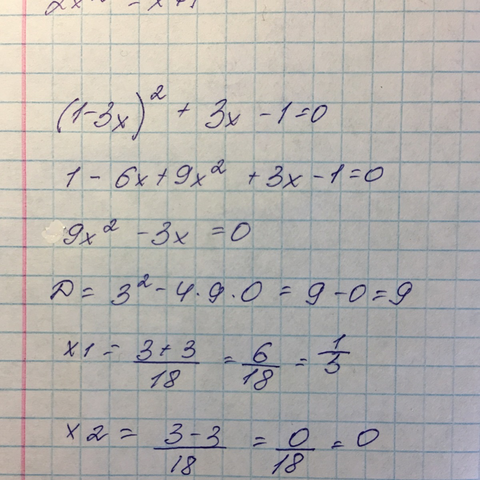 (1-3x)² + 3x - 1 = 0
1 - 6x + 9x² + 3x - 1 = 0
9x² - 3x = 0
D = 3² - 4·9·0 = 9 - 0 = 9
x1 = (3+3)/18 = 6/18 = 1/3
x2 = (3-3)/18 = 0/18 = 0